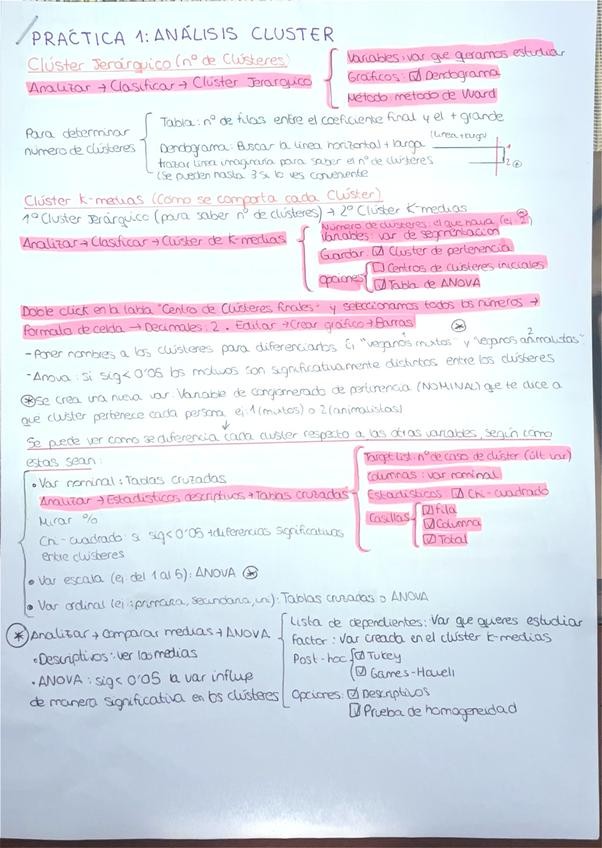 PRÁCTICA 1: ANÁLISIS CLUSTER
Clúster Jerárquico (nº de Clústeres)
Analizar → Clasificar → Clúster Jerárquico
Variables: var que queramos estudiar
Gráficos: ☑ Dendograma
Método: método de Ward
Para determinar
numero de clústeres
Tabla: nº de filas entre el coeficiente final y el + grande
Dendograma: Buscar la línea horizontal + larga
trazar línea imaginaria para saber el nº de clústeres
(Se pueden hasta 3 si lo ves conveniente
(línea + larga)
1
2
Clúster K-medias (Cómo se comporta cada Clúster)
1º Cluster Jerárquico (para saber nº de clústeres) → 2º Clúster K-medias
Analizar → Clasificar → Clúster de K-medias
Número de clústeres: el que haya (ej 2)
Variables: var de segmentación
Guardar ☑ Cluster de pertenencia
Opciones ☐ Centros de clústeres iniciales
☑ Tabla de ANOVA
Doble click en la tabla "Centro de Clústeres finales" y seleccionamos todos los números →
formato de celda → Decimales: 2. Editar → Crear gráfico → Barras
- Poner nombres a los clústeres para diferenciarlos Ej "veganos mixtos" y "veganos animalistas"
2
- Anova: si sig < 0'05 los motivos son significativamente distintos entre los clústeres
* Se crea una nueva var. Variable de conglomerado de pertinencia (NOMINAL) que te dice a
que cluster pertenece cada persona ej: 1 (mixtos) o 2 (animalistas)
Se puede ver como se diferencia cada cluster respecto a las otras variables, según como
estas sean:
• Var nominal: Tablas cruzadas
Analizar → Estadísticos descriptivos → Tablas cruzadas
Mirar %
Chi-cuadrado si sig < 0'05 + diferencias significativas
entre clústeres
Target list: nº de caso de clúster (últ var)
Columnas: var nominal
Estadísticos ☑ Chi-cuadrado
Casillas ☑ Fila
☑ Columna
☑ Total
• Var escala (ej del 1 al 5): ANOVA *
• Var ordinal (ej: primaria, secundaria, uni): Tablas cruzadas o ANOVA
* Analizar → Comparar medias → ANOVA
• Descriptivos: ver las medias
• ANOVA: sig < 0'05 la var influye
de manera significativa en los clústeres
Lista de dependientes: Var que quieres estudiar
Factor: Var creada en el clúster K-medias
Post-hoc ☑ Tukey
☑ Games-Howell
Opciones: ☑ Descriptivos
☑ Prueba de homogeneidad